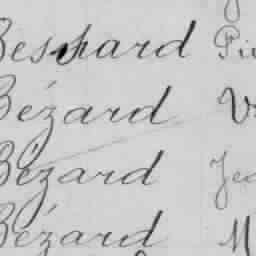 Besnard Pi
Bézard V
Bézard Jea
Bézard M